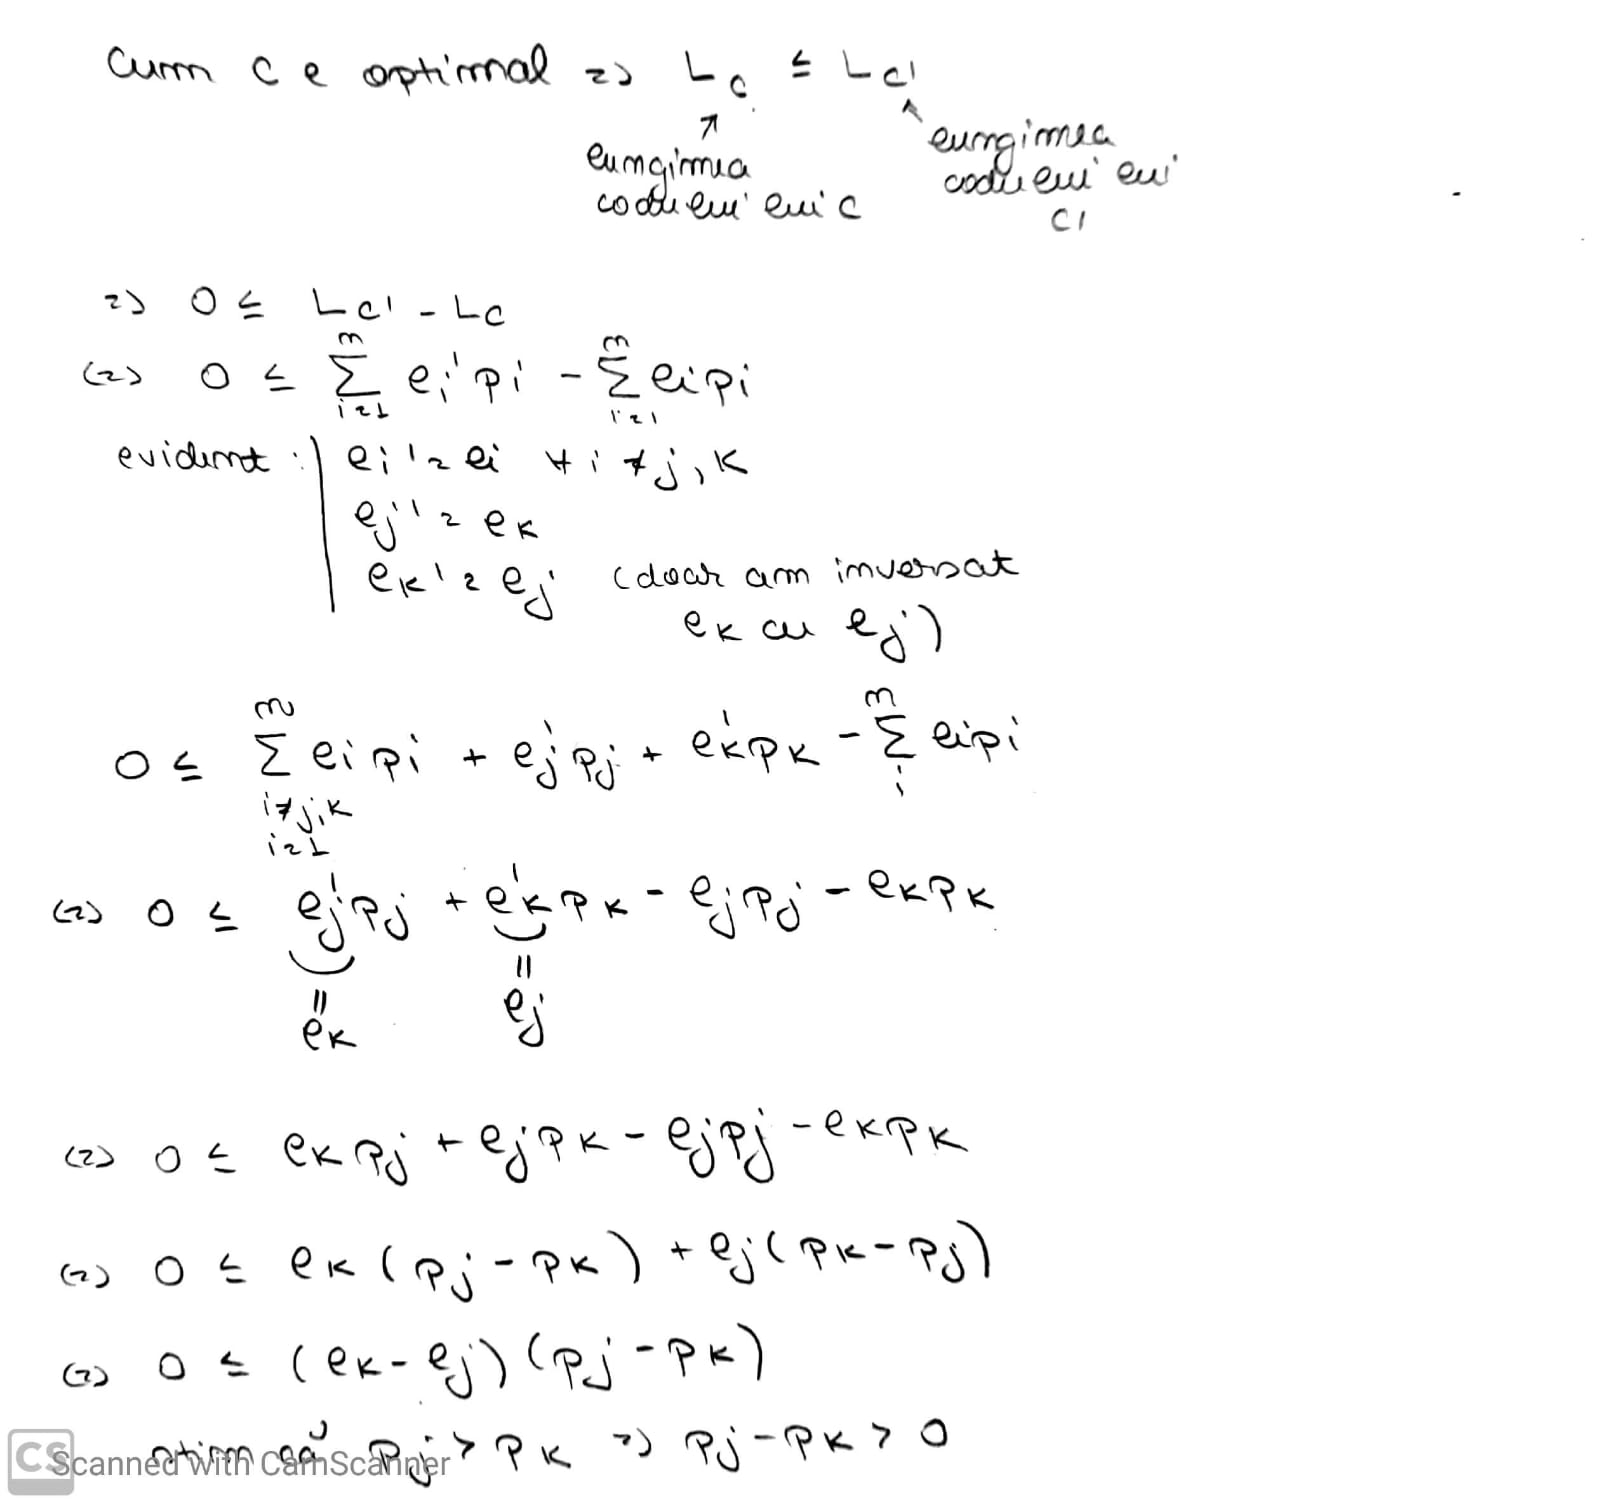 Cum C e optimal => L_C ≤ L_C'
lungimea codului lui C
lungimea codului lui C'
=> 0 ≤ L_C' - L_C
(=) 0 ≤ ∑_{i=1}^{m} l_i' p_i - ∑_{i=1}^{m} l_i p_i
evident: | l_i' = l_i ∀ i ≠ j, k
l_j' = l_k
l_k' = l_j (doar am inversat
l_k cu l_j)
0 ≤ ∑_{i≠j,k i=1}^{m} l_i p_i + l_j' p_j + l_k' p_k - ∑_{i}^{m} l_i p_i
(=) 0 ≤ l_j' p_j + l_k' p_k - l_j p_j - l_k p_k
= l_k = l_j
(=) 0 ≤ l_k p_j + l_j p_k - l_j p_j - l_k p_k
(=) 0 ≤ l_k (p_j - p_k) + l_j (p_k - p_j)
(=) 0 ≤ (l_k - l_j) (p_j - p_k)
știm că p_j > p_k => p_j - p_k > 0
CS Scanned with CamScanner